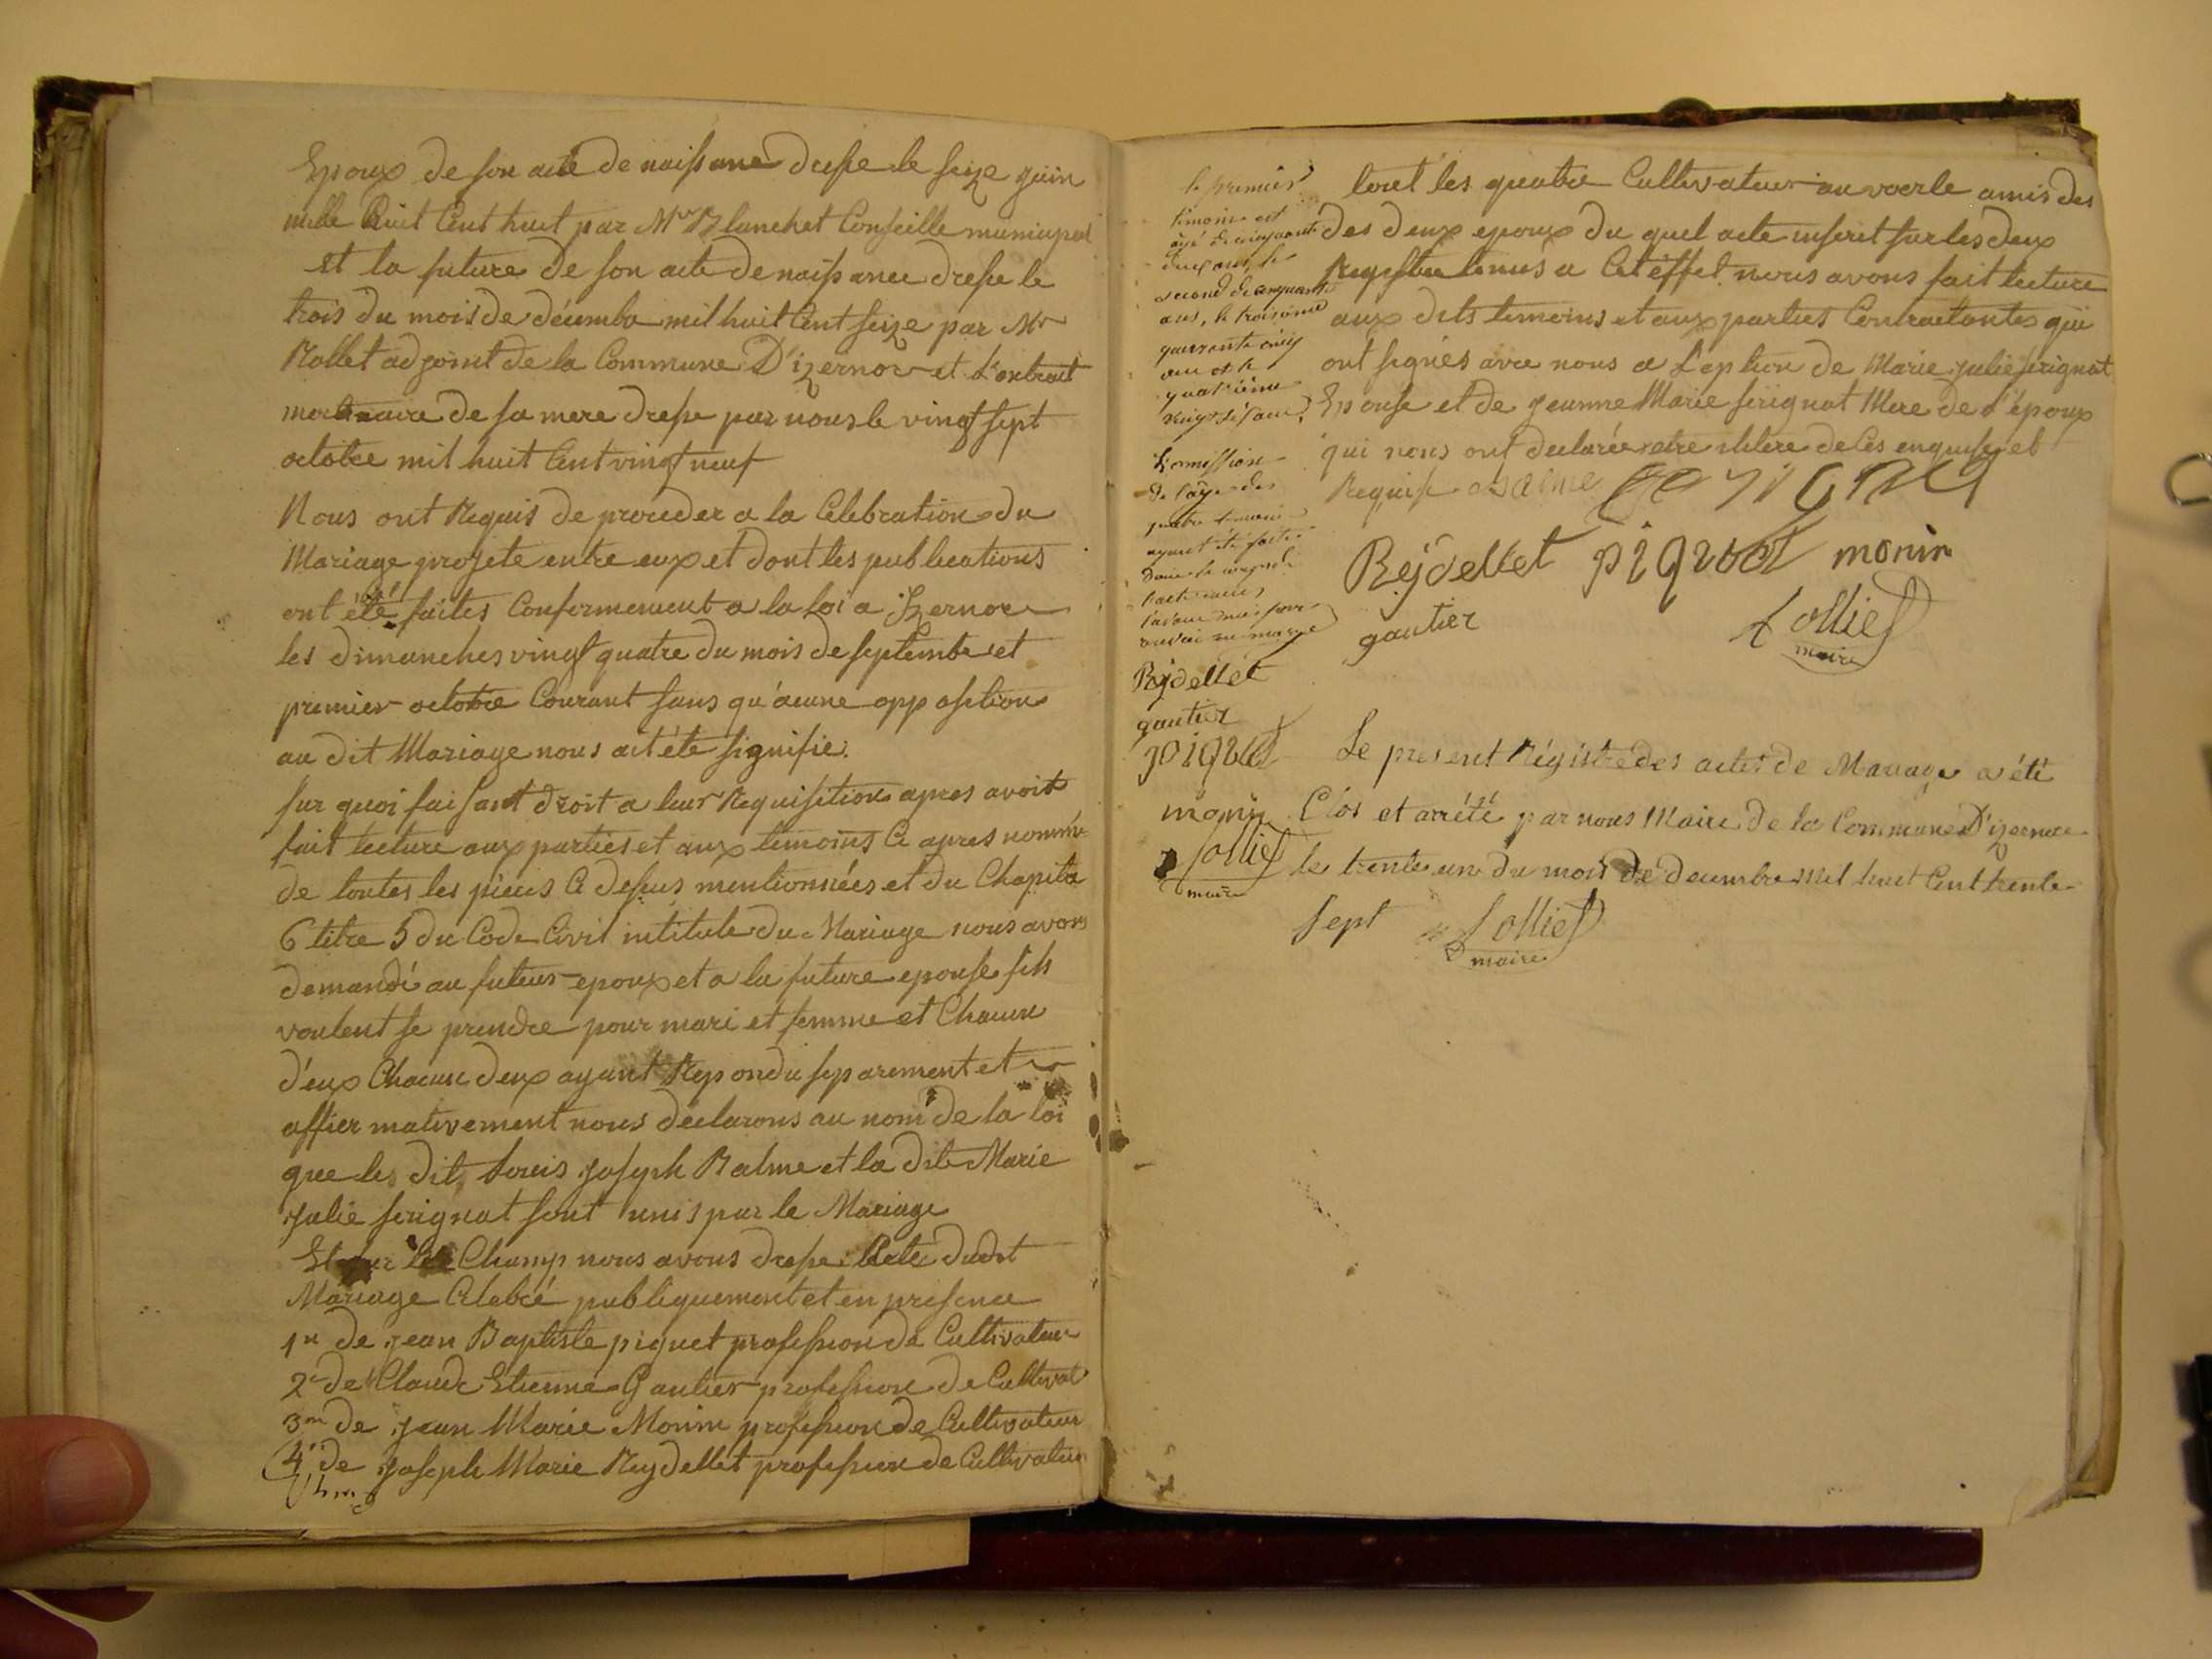 Epoux de son acte de naissance dressé le seize juin
mille huit Cent huit par Mr Blanchet Conseille municipal
et la future de son acte de naissance dressé le
trois du mois de décembre mil huit Cent seize par Mr
Mollet adjoint de la Commune D'izernore et L'extrait
mortuaire de sa mere dressé par nous le vingt sept
octobre mil huit Cent vingt neuf
Nous ont Requis de proceder a la Celebration du
Mariage projeté entre eux et dont les publications
ont été faites Conformement a la loi a Izernore
les dimanches vingt quatre du mois de septembre et
premier octobre Courant sans qu'aucune opposition
au dit Mariage nous ait été signifie.
sur quoi faisant droit a leur Requisition apres avoir
fait lecture aux parties et aux temoins Ci apres nommés
de toutes les pieces Ci dessus mentionnées et du Chapitre
6 titre 5 du Code Civil intitule du Mariage nous avons
demandé au futeur epoux et a la future epouse sils
voulent se prendre pour mari et femme et Chacun
d'eux Chacun deux ayant Repondu separement et
affier mativement nous déclarons au nom de la loi
que les dit Louis joseph Balme et la dite Marie
julie serignat sont unis par le Mariage
Et sur le Champ nous avons dressé acte dudit
Mariage Celebré publiquement et en presence
1er de jean Baptiste piquet profession de Cultivateur
2e de Claude Etienne Gautier profession de Cultivat
3me de jean Marie Monin profession de Cultivateur
4e de joseph Marie Reydellet profession de Cultivateur
4me
le premier
temoin est
âgé de cinquante
ans, le
second de cinquante
ans, le troisieme
quarante cinq
ans et le
quatrième
vingt six ans.
L'omission
de l'âge des
quatre temoins
ayant été faite
dans le corps de
l'acte nous
l'avons mis par
renvoi en marge
Reydellet
gautier
piquet
monin
Jolliet
maire
tout les quatre Cultivateur au voerle amis des
des deux epoux du quel acte inseret sur les deux
Registre tenus a Cet éffet nous avons fait lecture
aux dits temoins et aux parties Contractantes qui
ont signés avec nous a L'eption de Marie julie serignat
Epouse et de jeanne Marie serignat Mere de l'époux
qui nous ont declarée etre iletere de Ces enquise et
Requise Balme serignat
Reydellet piquet monin
gautier Jolliet
maire
Le present Régistre des actes de Mariage a été
Clos et arrété par nous Maire de la Commune D'izernore
le trente un du mois de decembre mil huit Cent trente
sept Jolliet
maire